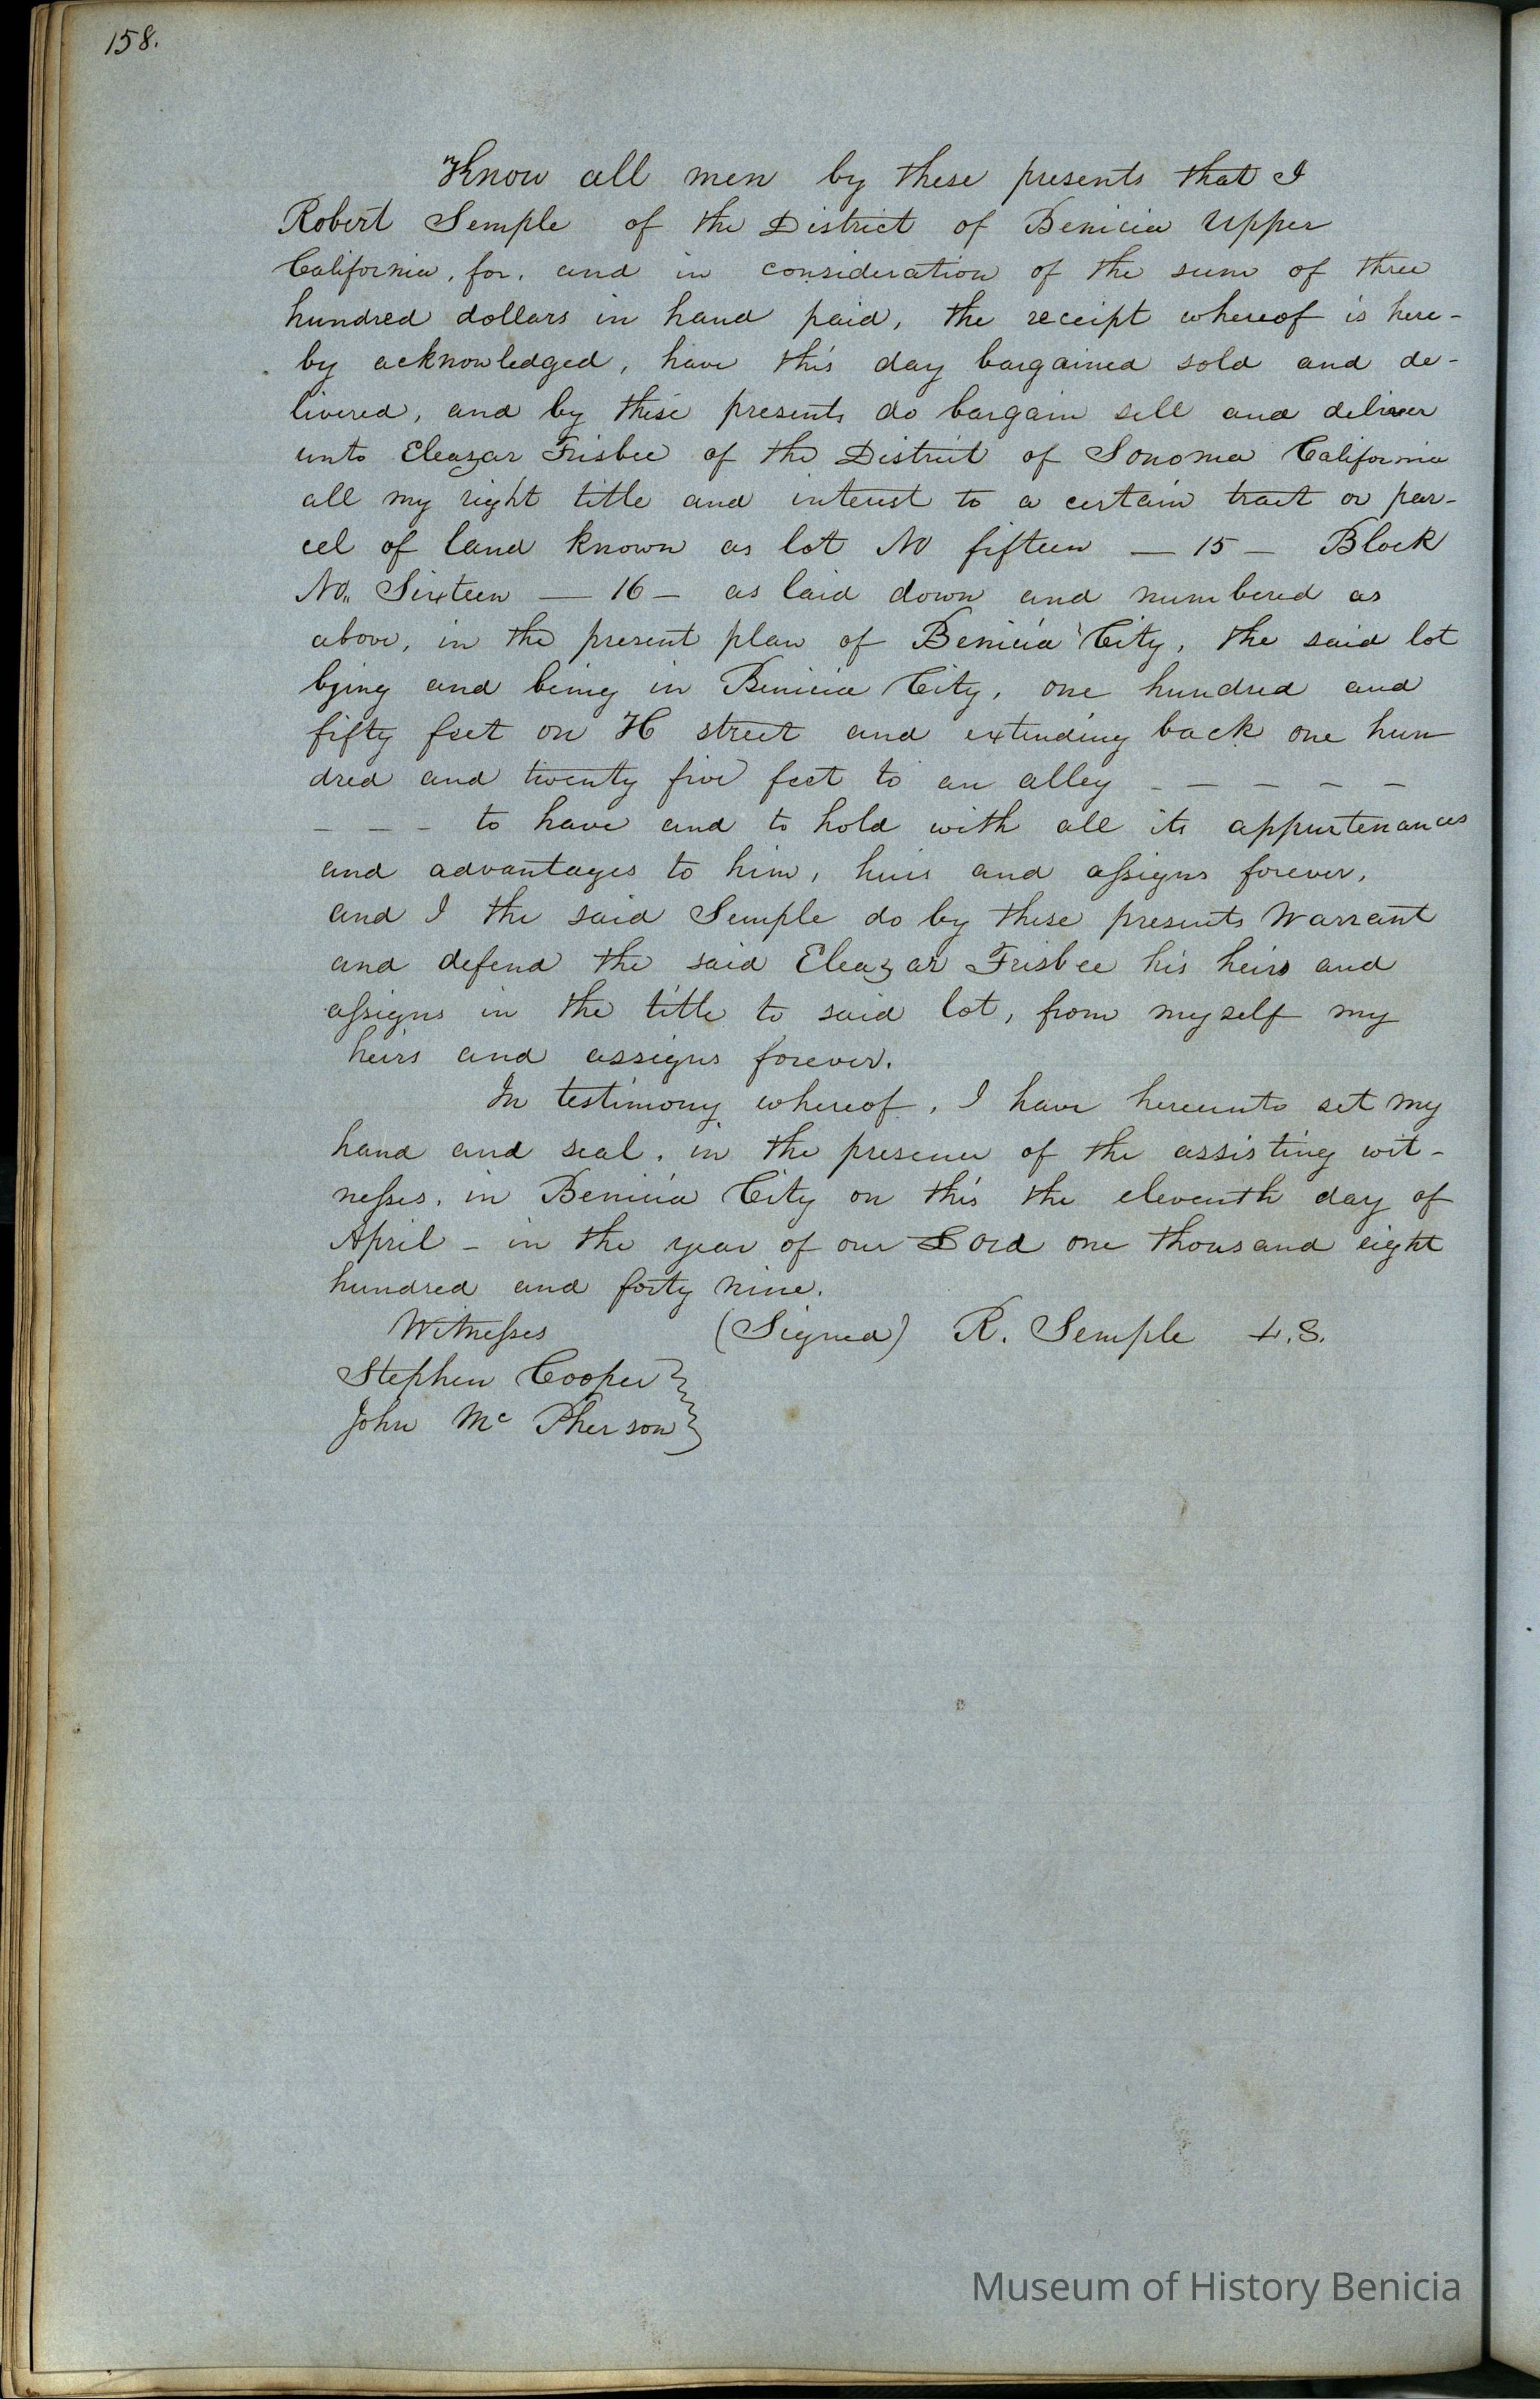 158.
Know all men by these presents that I
Robert Semple of the District of Benicia Upper
California, for, and in consideration of the sum of three
hundred dollars in hand paid, the receipt whereof is here-
by acknowledged, have this day bargained sold and de-
livered, and by these presents do bargain sell and deliver
unto Eleazar Frisbee of the District of Sonoma California
all my right title and interest to a certain tract or par-
cel of land known as lot No fifteen — 15 — Block
No. Sixteen — 16 — as laid down and numbered as
above, in the present plan of Benicia City, the said lot
lying and being in Benicia City, one hundred and
fifty feet on H street and extending back one hun
dred and twenty five feet to an alley - - - - -
- - - to have and to hold with all its appurtenances
and advantages to him, heirs and assigns forever,
and I the said Semple do by these presents Warrant
and defend the said Eleazar Frisbee his heirs and
assigns in the title to said lot, from myself my
heirs and assigns forever.
In testimony whereof, I have hereunto set my
hand and seal, in the presence of the assisting wit-
nesses, in Benicia City on this the eleventh day of
April - in the year of our Lord one thousand eight
hundred and forty nine.
Witnesses (Signed) R. Semple L.S.
Stephen Cooper }
John Mc Pherson }
Museum of History Benicia